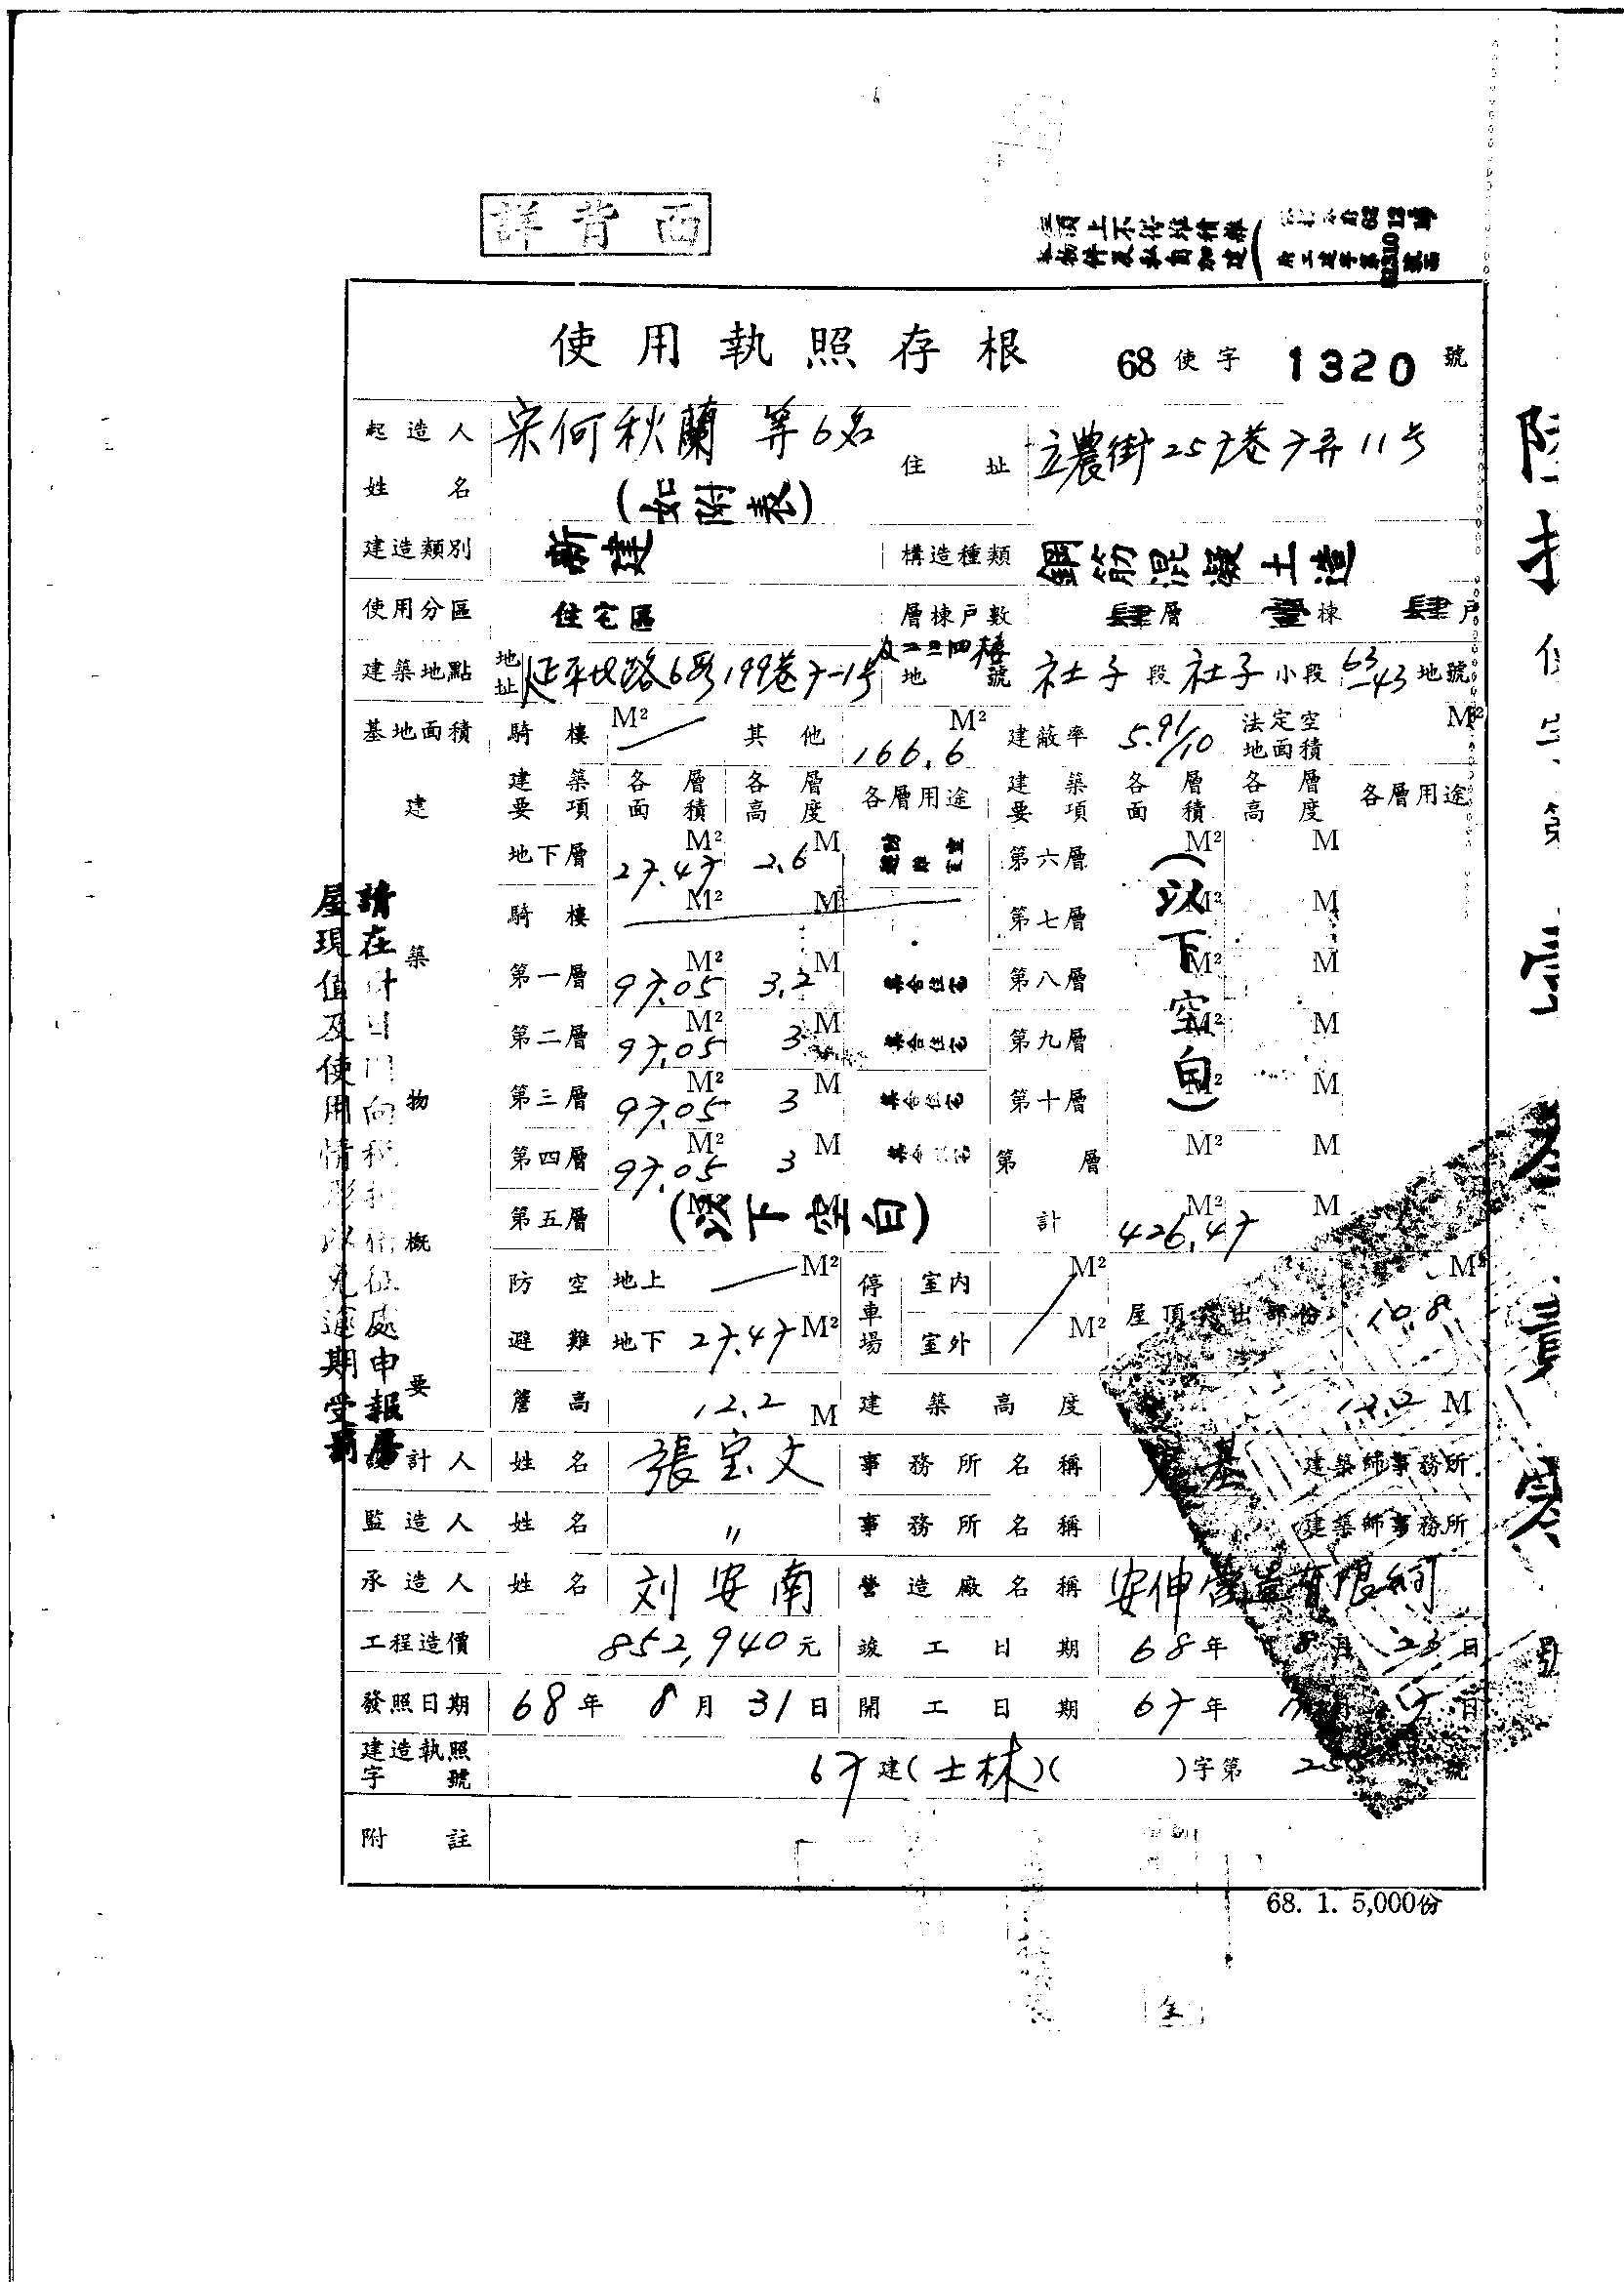 詳背面
使用執照存根 68使字 1320 號
起造人姓名 宋何秋蘭 等6名 (如附表) 住址 立農街257巷7弄11号
建造類別 新建 構造種類 鋼筋混凝土造
使用分區 住宅區 層棟戶數 肆層 壹棟 肆戶
及二三四樓
建築地點 地址 延平北路6段199巷7-1号 地號 社子段 社子小段 63-43地號
基地面積 騎樓 M² 其他 166.6 M² 建蔽率 5.91/10 法定空地面積 M²
建築物概要
建築要項 各層面積 各層高度 各層用途 建築要項 各層面積 各層高度 各層用途
地下層 27.47 M² 2.6 M 第六層 M² M
騎樓 M² M 第七層 M² M
第一層 97.05 M² 3.2 M 集合住宅 第八層 M² M
第二層 97.05 M² 3 M 集合住宅 第九層 M² M
第三層 97.05 M² 3 M 集合住宅 第十層 M² M
第四層 97.05 M² 3 M 集合住宅 第 層 M² M
第五層 (以下空白) M² M 計 426.47 M² M
(以下空白)
防空避難 地上 M² 停車場 室內 M² 屋頂突出部份 10.8 M²
地下 27.47 M² 室外 M²
簷高 12.2 M 建築高度 12.2 M
設計人 姓名 張宝文 事務所名稱 基 建築師事務所
監造人 姓名 〃 事務所名稱 建築師事務所
承造人 姓名 刘安南 營造廠名稱 安伸營造有限公司
工程造價 852,940元 竣工日期 68年 8月 23日
發照日期 68年 8月 31日 開工日期 67年 月 日
建造執照字號 67建(士林)( )字第 號
附註
68. 1. 5,000份
請在 日內向稅捐稽征處申報房
屋現值及使用情形以免逾期受罰